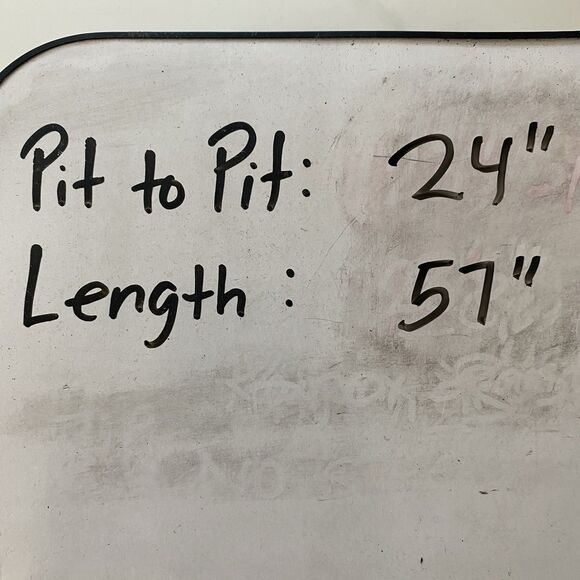 Pit to Pit: 24"
Length: 57"